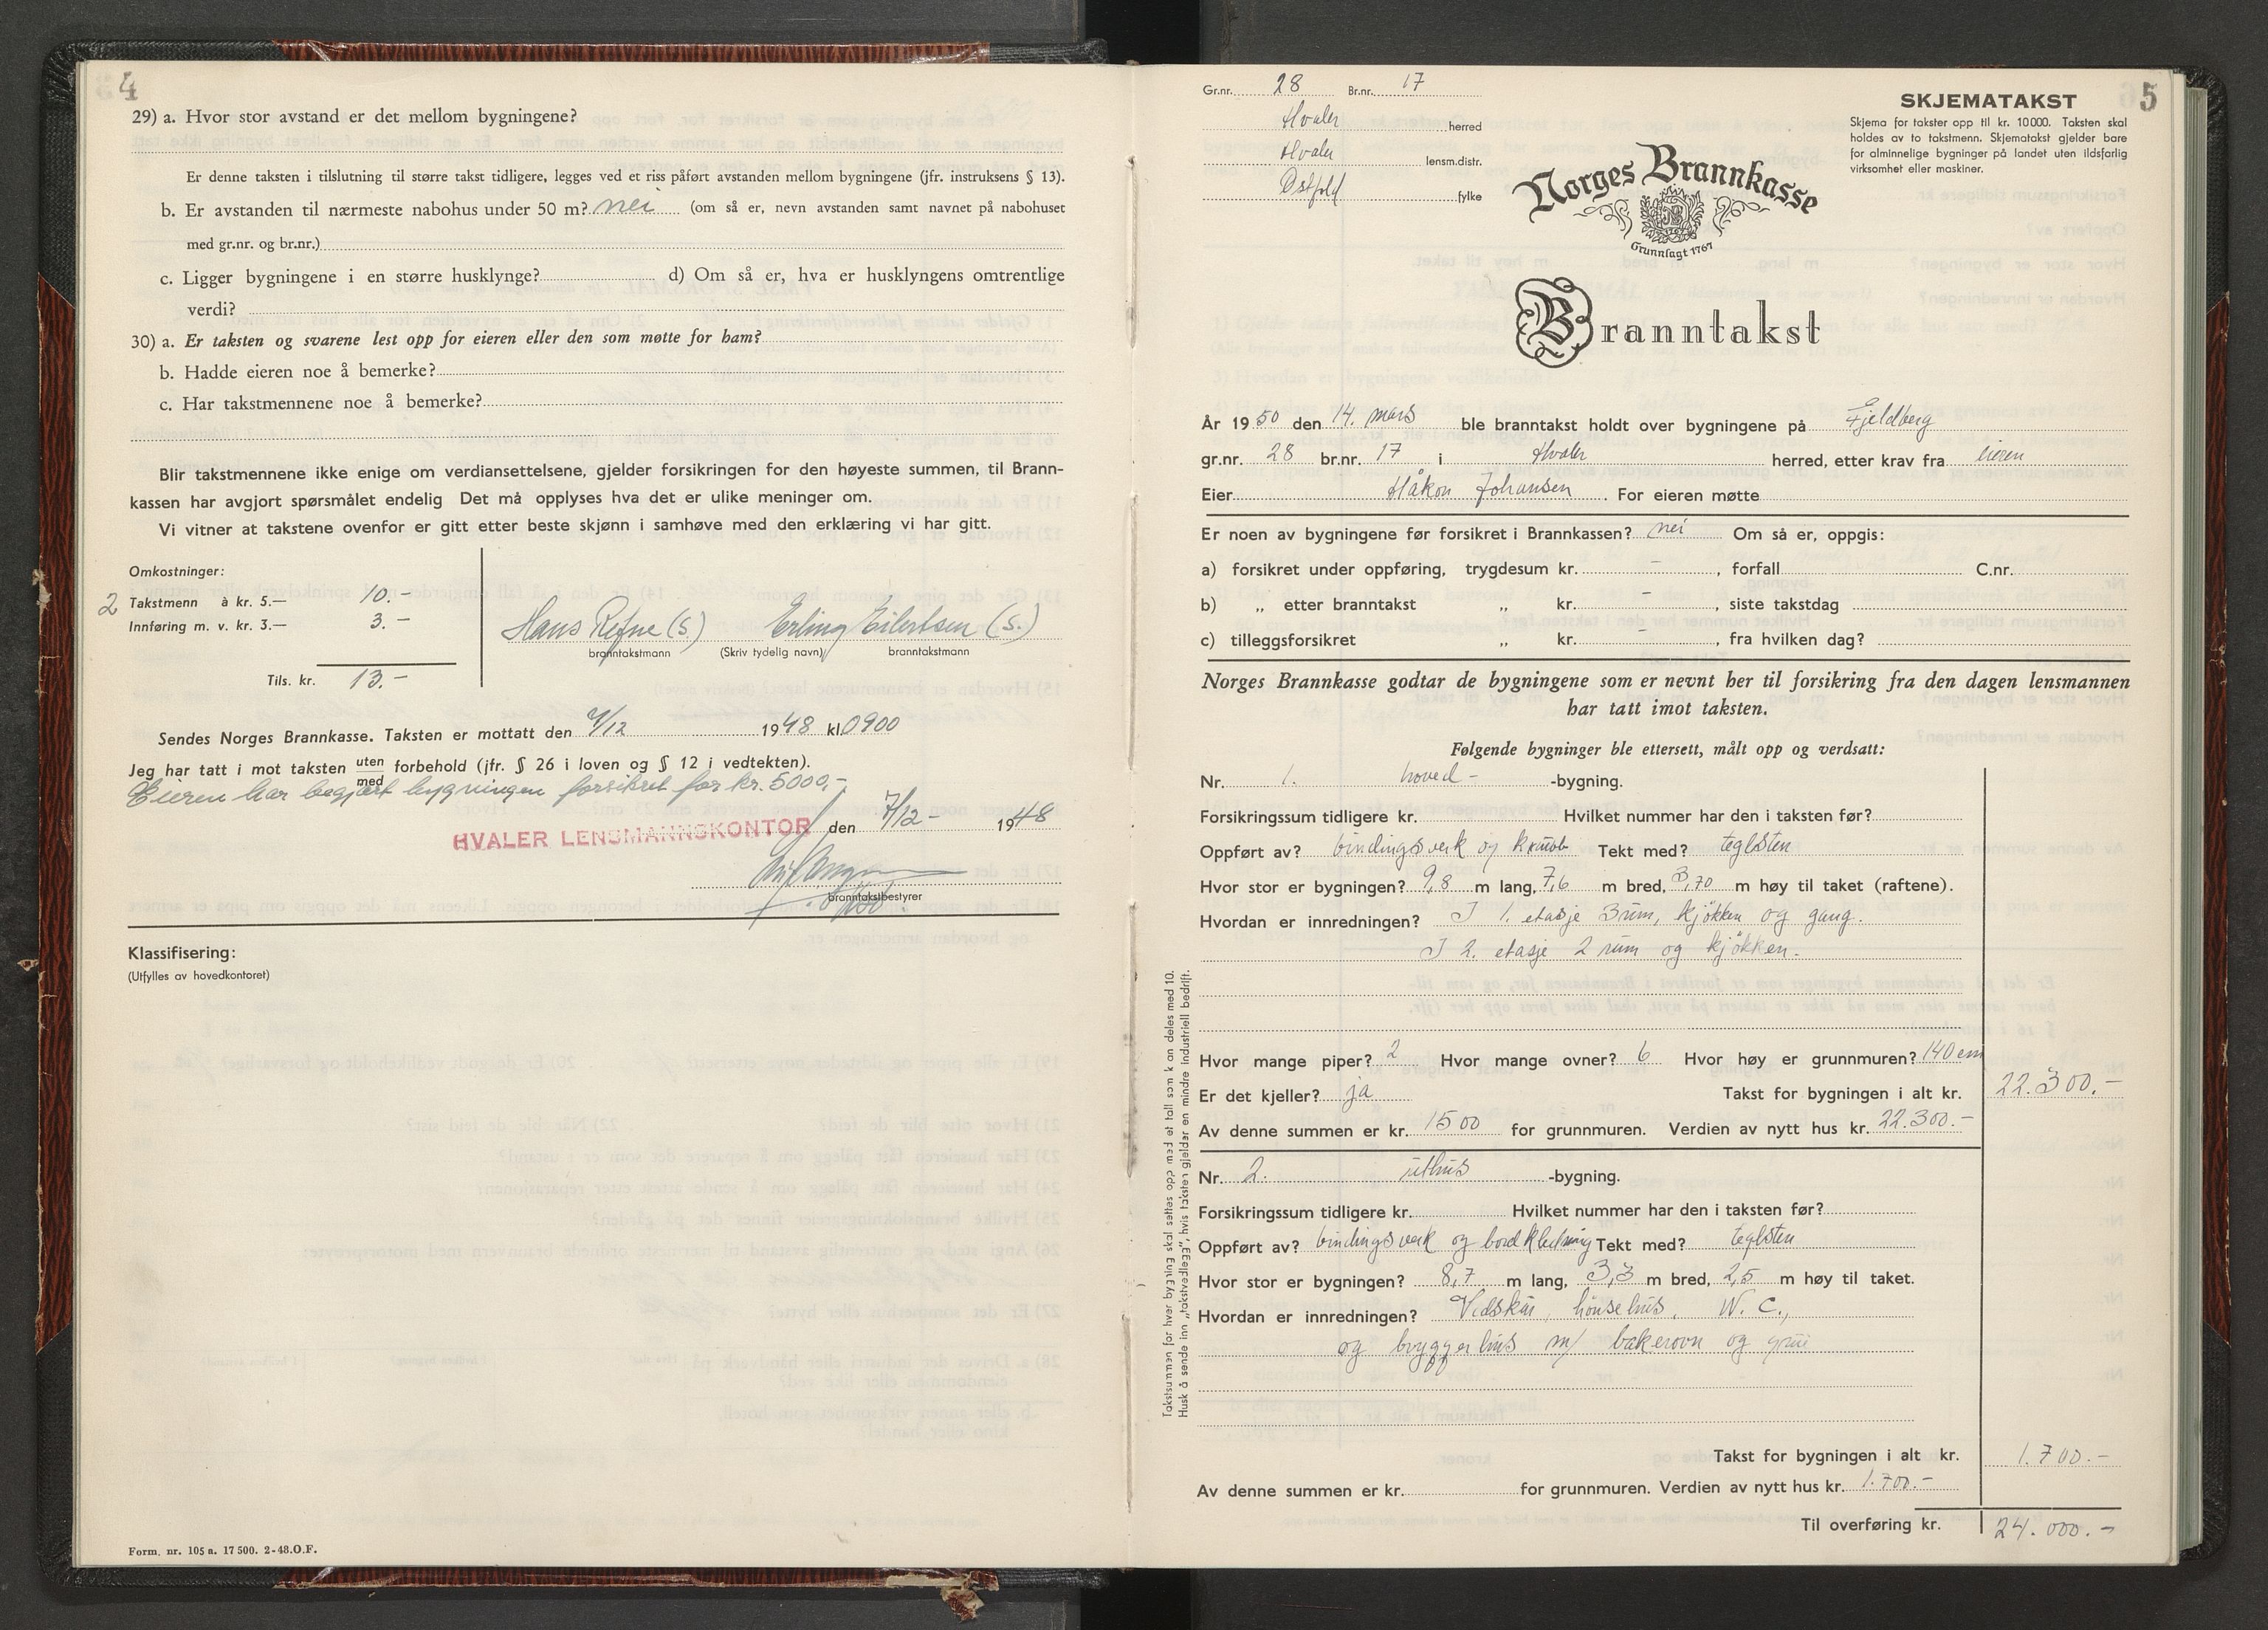 4
29) a. Hvor stor avstand er det mellom bygningene?
Er denne taksten i tilslutning til større takst tidligere, legges ved et riss påført avstanden mellom bygningene (jfr. instruksens § 13).
b. Er avstanden til nærmeste nabohus under 50 m? nei (om så er, nevn avstanden samt navnet på nabohuset
med gr.nr. og br.nr.)
c. Ligger bygningene i en større husklynge? d) Om så er, hva er husklyngens omtrentlige
verdi?
30) a. Er taksten og svarene lest opp for eieren eller den som møtte for ham?
b. Hadde eieren noe å bemerke?
c. Har takstmennene noe å bemerke?
Blir takstmennene ikke enige om verdiansettelsene, gjelder forsikringen for den høyeste summen, til Brann-
kassen har avgjort spørsmålet endelig Det må opplyses hva det er ulike meninger om.
Vi vitner at takstene ovenfor er gitt etter beste skjønn i samhøve med den erklæring vi har gitt.
Omkostninger:
2 Takstmenn à kr. 5.— 10.-
Innføring m. v. kr. 3.— 3.-
Tils. kr. 13.-
Hans Refne (s.) Erling Eilertsen (s.)
branntakstmann (Skriv tydelig navn) branntakstmann
Sendes Norges Brannkasse. Taksten er mottatt den 7/12 1948 kl 0900
Jeg har tatt i mot taksten uten med forbehold (jfr. § 26 i loven og § 12 i vedtekten).
Eieren har begjært bygningen forsikret for kr. 5000,-
HVALER LENSMANNSKONTOR den 7/12- 1948
branntakstbestyrer
Klassifisering:
(Utfylles av hovedkontoret)
Form. nr. 105 a. 17 500. 2-48. O.F.
5
Gr.nr. 28 Br.nr. 17
Hvaler herred
Hvaler lensm.distr.
Østfold fylke
SKJEMATAKST
Skjema for takster opp til kr. 10000. Taksten skal
holdes av to takstmenn. Skjematakst gjelder bare
for alminnelige bygninger på landet uten ildsfarlig
virksomhet eller maskiner.
Norges Brannkasse
Grunnlagt 1767
Branntakst
År 1950 den 14. mars ble branntakst holdt over bygningene på Fjeldberg
gr.nr. 28 br.nr. 17 i Hvaler herred, etter krav fra eieren
Eier Håkon Johansen For eieren møtte
Er noen av bygningene før forsikret i Brannkassen? nei Om så er, oppgis:
a) forsikret under oppføring, trygdesum kr. - , forfall C.nr.
b) „ etter branntakst „ kr. - , siste takstdag
c) tilleggsforsikret „ kr. - , fra hvilken dag?
Norges Brannkasse godtar de bygningene som er nevnt her til forsikring fra den dagen lensmannen
har tatt imot taksten.
Følgende bygninger ble ettersett, målt opp og verdsatt:
Nr. 1. hoved- -bygning.
Forsikringssum tidligere kr. Hvilket nummer har den i taksten før?
Oppført av? bindingsverk og Tekt med? teglsten
Hvor stor er bygningen? 9,8 m lang, 7,6 m bred, 3,70 m høy til taket (raftene).
Hvordan er innredningen? I 1. etasje 3 rum, kjökken og gang.
I 2. etasje 2 rum og kjökken.
Hvor mange piper? 2 Hvor mange ovner? 6 Hvor høy er grunnmuren? 140 cm
Er det kjeller? ja Takst for bygningen i alt kr. 22.300.-
Av denne summen er kr. 1500 for grunnmuren. Verdien av nytt hus kr. 22.300.-
Nr. 2. uthus -bygning.
Forsikringssum tidligere kr. Hvilket nummer har den i taksten før?
Oppført av? bindingsverk og bordkledning Tekt med? teglsten
Hvor stor er bygningen? 8,7 m lang, 3,3 m bred, 2,5 m høy til taket.
Hvordan er innredningen? Vedskür, hönsehus, W. C.,
og bryggerhus m/ bakerovn og grue
Takst for bygningen i alt kr. 1.700.-
Av denne summen er kr. for grunnmuren. Verdien av nytt hus kr. 1.700.-
Til overføring kr. 24.000.-
Takstsummen for hver bygning skal settes opp med et tall som kan deles med 10.
Husk å sende inn „takstvedlegg”, hvis taksten gjelder en mindre industriell bedrift.